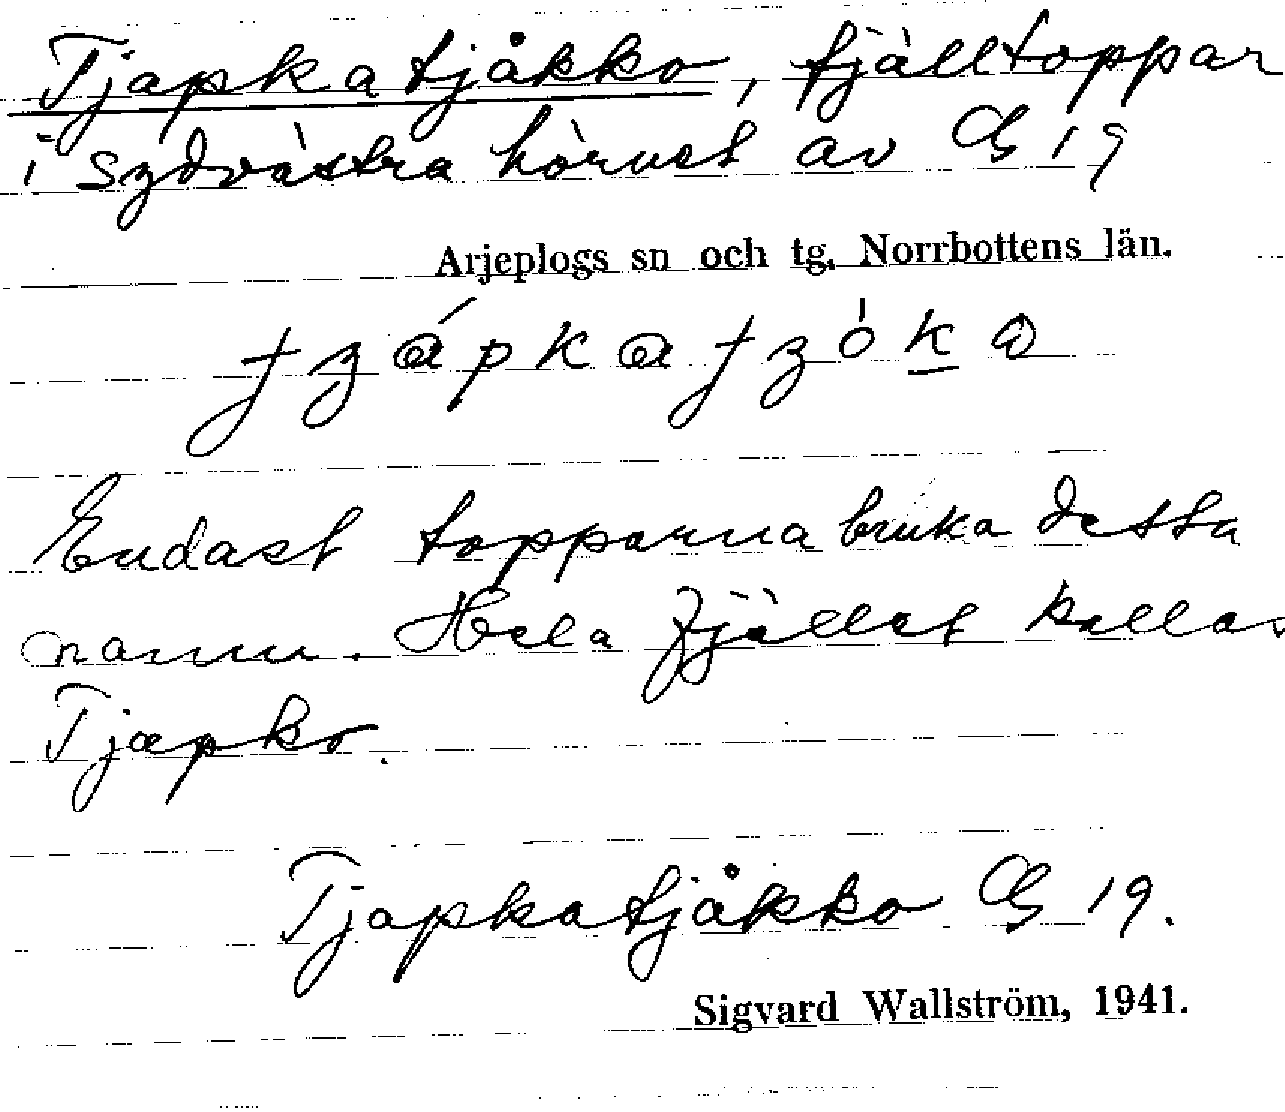 Tjapkatjåkko, fjälltoppar
i sydvästra hörnet av G 19
Arjeplogs sn och tg. Norrbottens län.
Endast topparna bruka detta
namn. Hela fjället kallas
Tjapko.
Tjapkatjåkko G 19.
Sigvard Wallström, 1941.